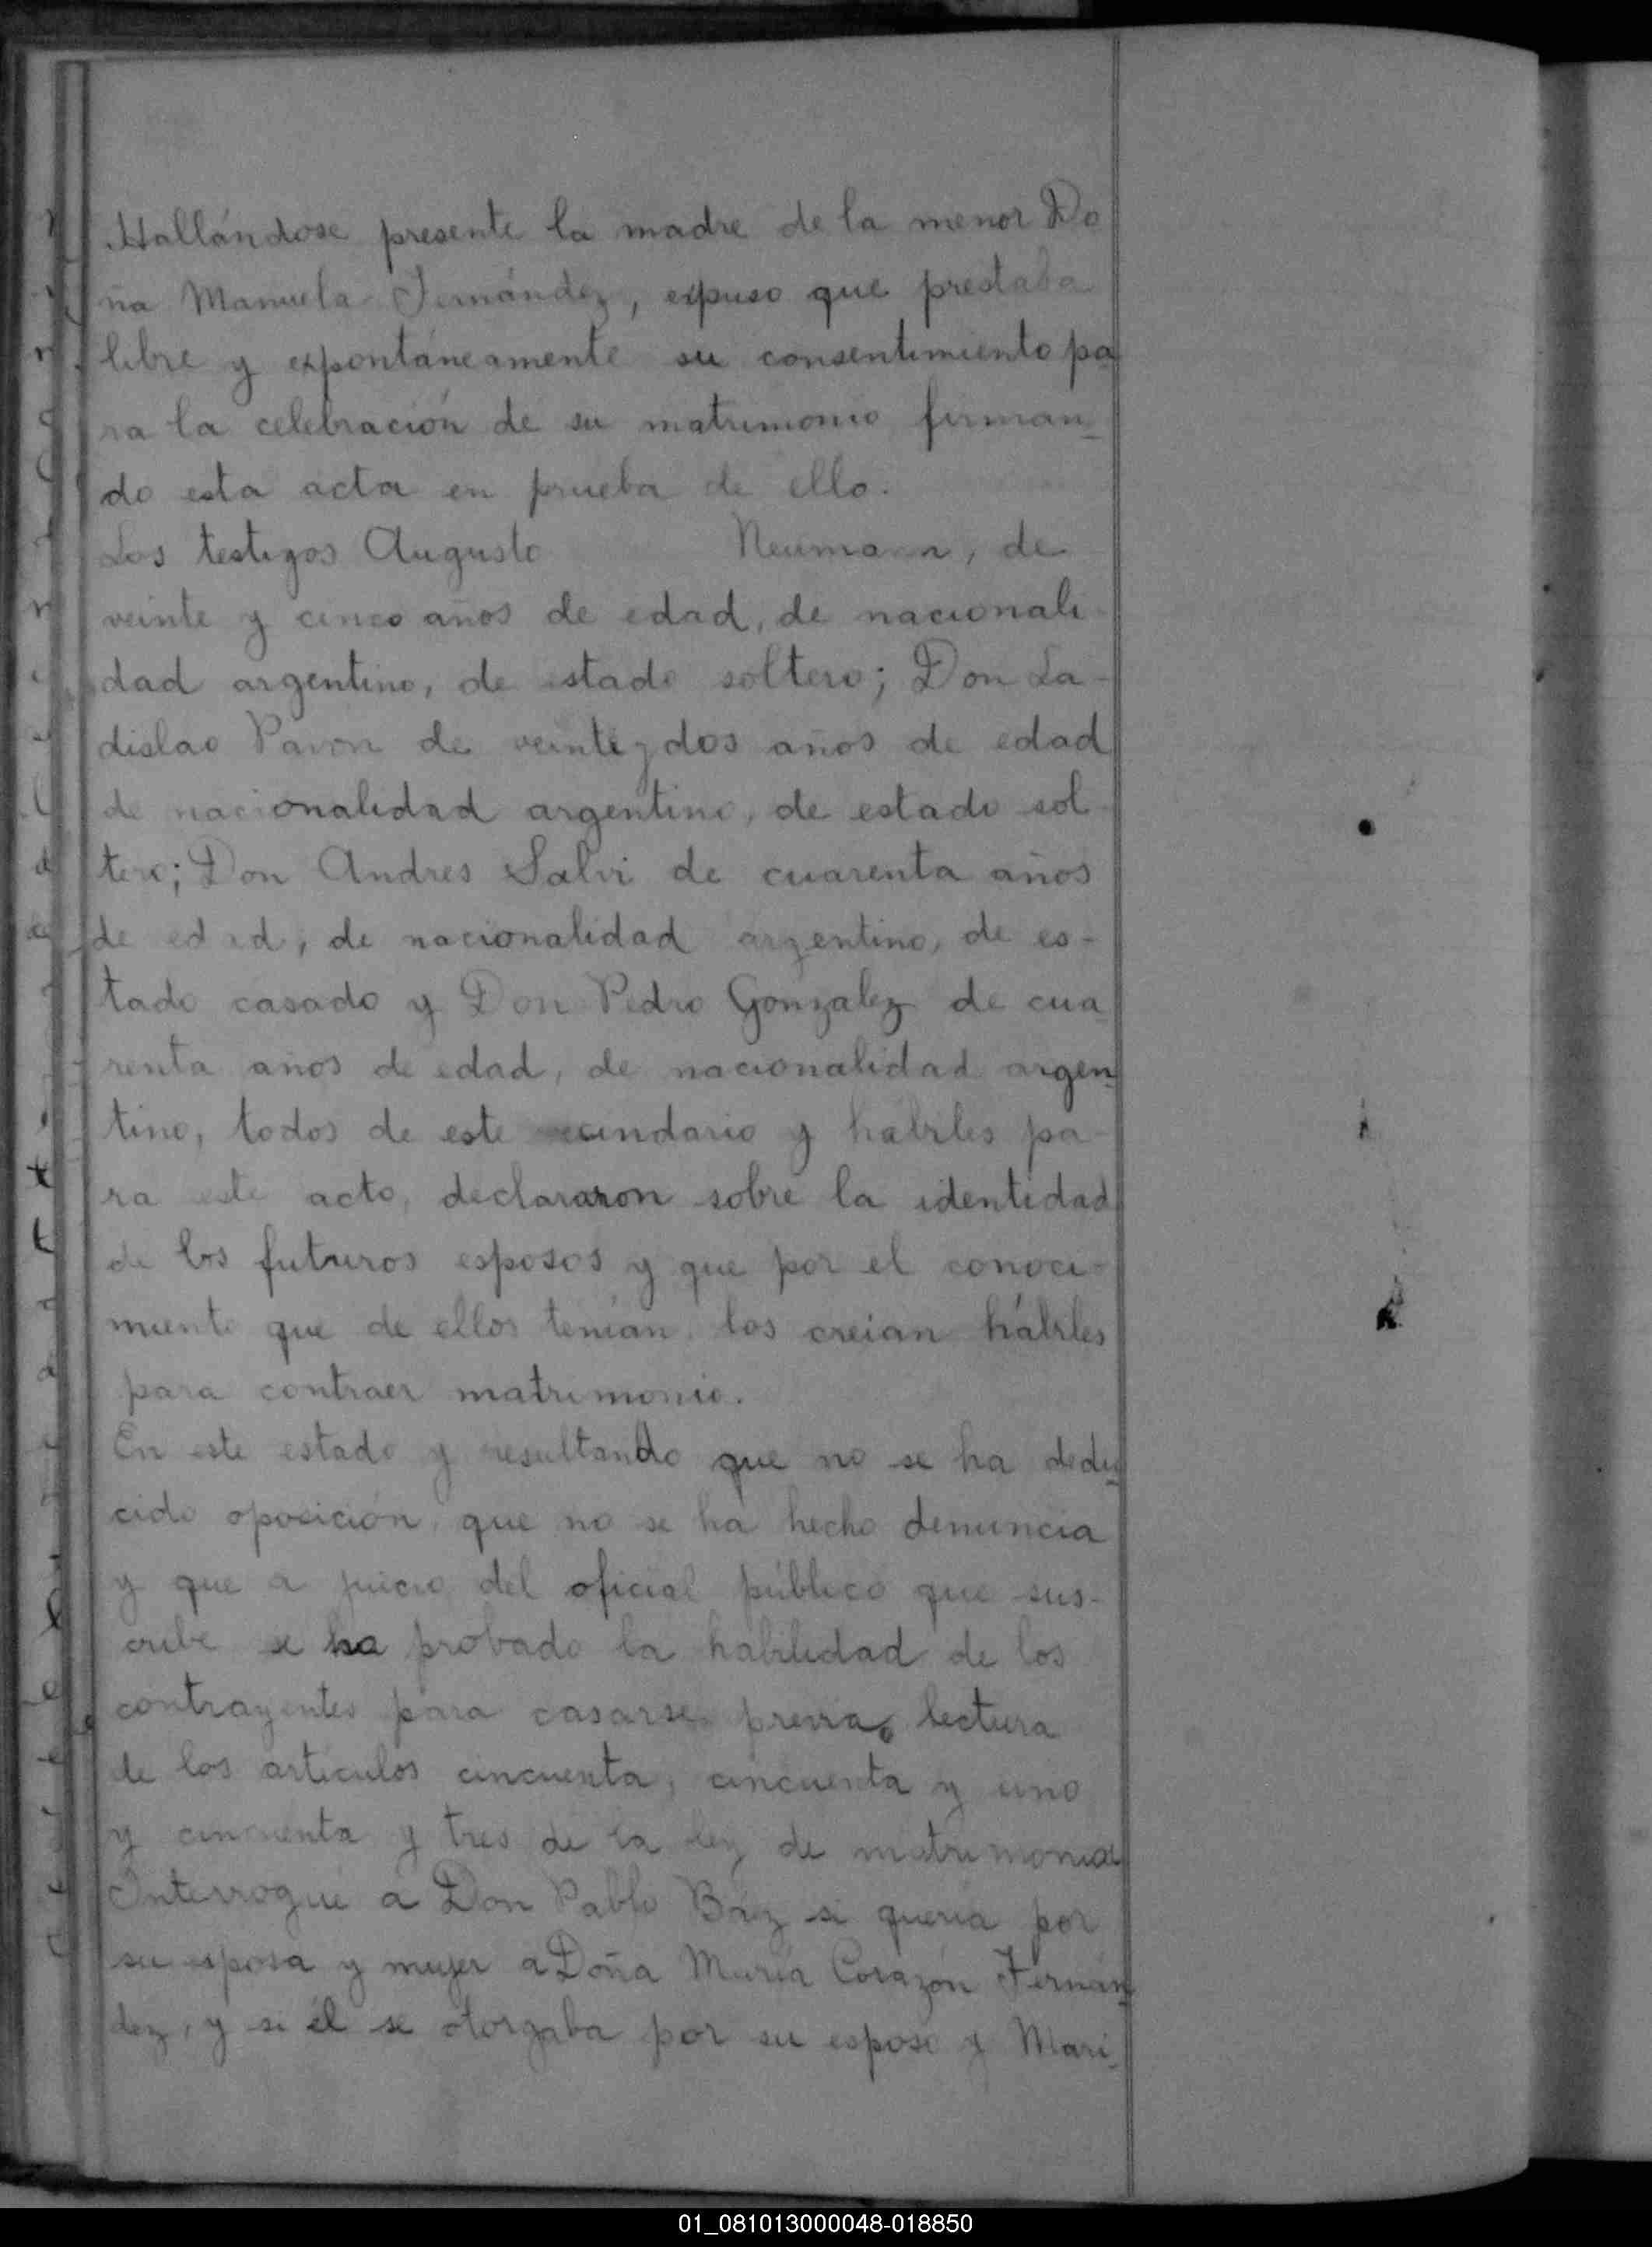 Hallándose presente la madre de la menor Do
ña Manuela Fernández, expuso que prestaba
libre y expontáneamente su consentimiento pa
ra la celebración de su matrimonio firman_
do esta acta en prueba de ello.
Los testigos Augusto Neumann, de
veinte y cinco años de edad, de nacionali-
dad argentino, de estado soltero; Don La-
dislao Pavon de veinte y dos años de edad
de nacionalidad argentino, de estado sol
tero; Don Andres Salvi de cuarenta años
de edad, de nacionalidad argentino, de es-
tado casado y Don Pedro Gonzalez de cua
renta años de edad, de nacionalidad argen_
tino, todos de este vecindario y hábiles pa-
ra este acto, declararon sobre la identidad
de los futuros esposos y que por el conoci-
miento que de ellos tenían, los creían hábiles
para contraer matrimonio.
En este estado y resultando que no se ha dedu_
cido oposición, que no se ha hecho denuncia
y que a juicio del oficial público que sus-
cribe se ha probado la habilidad de los
contrayentes para casarse, previa lectura
de los artículos cincuenta, cincuenta y uno
y cincuenta y tres de la ley de matrimonial
Interrogué a Don Pablo Báez si quería por
su esposa y mujer a Doña María Corazón Fernán_
dez, y si él se otorgaba por su esposo y Mari_
01_081013000048-018850